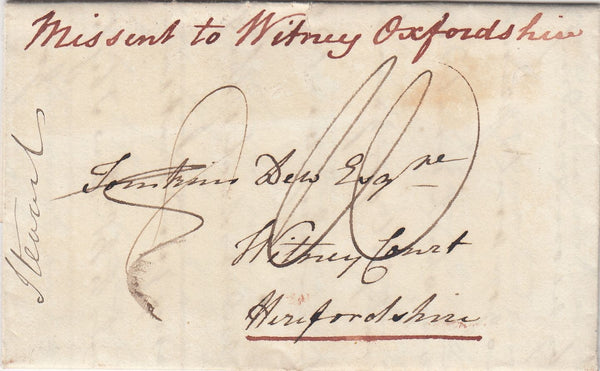 Missent to Witney Oxfordshire
Tomkins Dew Esqre
Witney Court
Herefordshire
Stewart